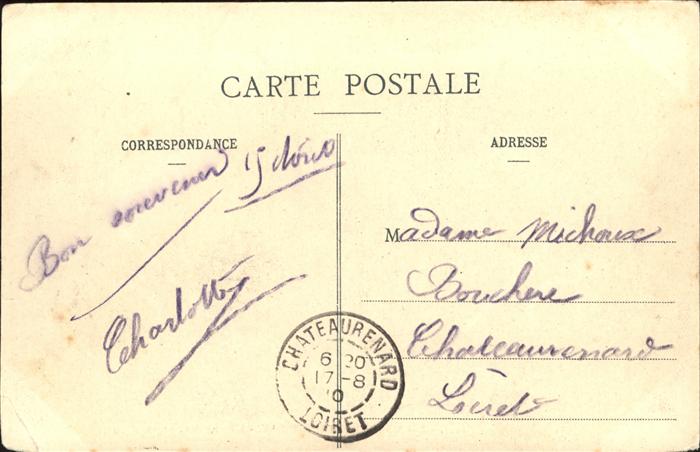 CARTE POSTALE
CORRESPONDANCE
ADRESSE
15
Bon souvenir
Charlotte
Madame Michoux
Bouchère
Chateaurenard
Loiret
CHATEAURENARD
6 20
17-8
10
LOIRET